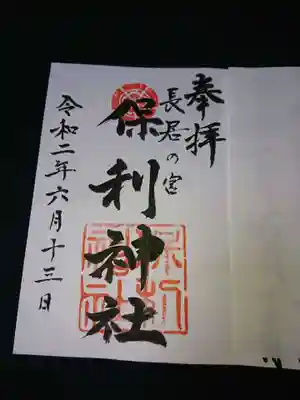 奉拝
長居の宮
保利神社
令和二年六月十三日